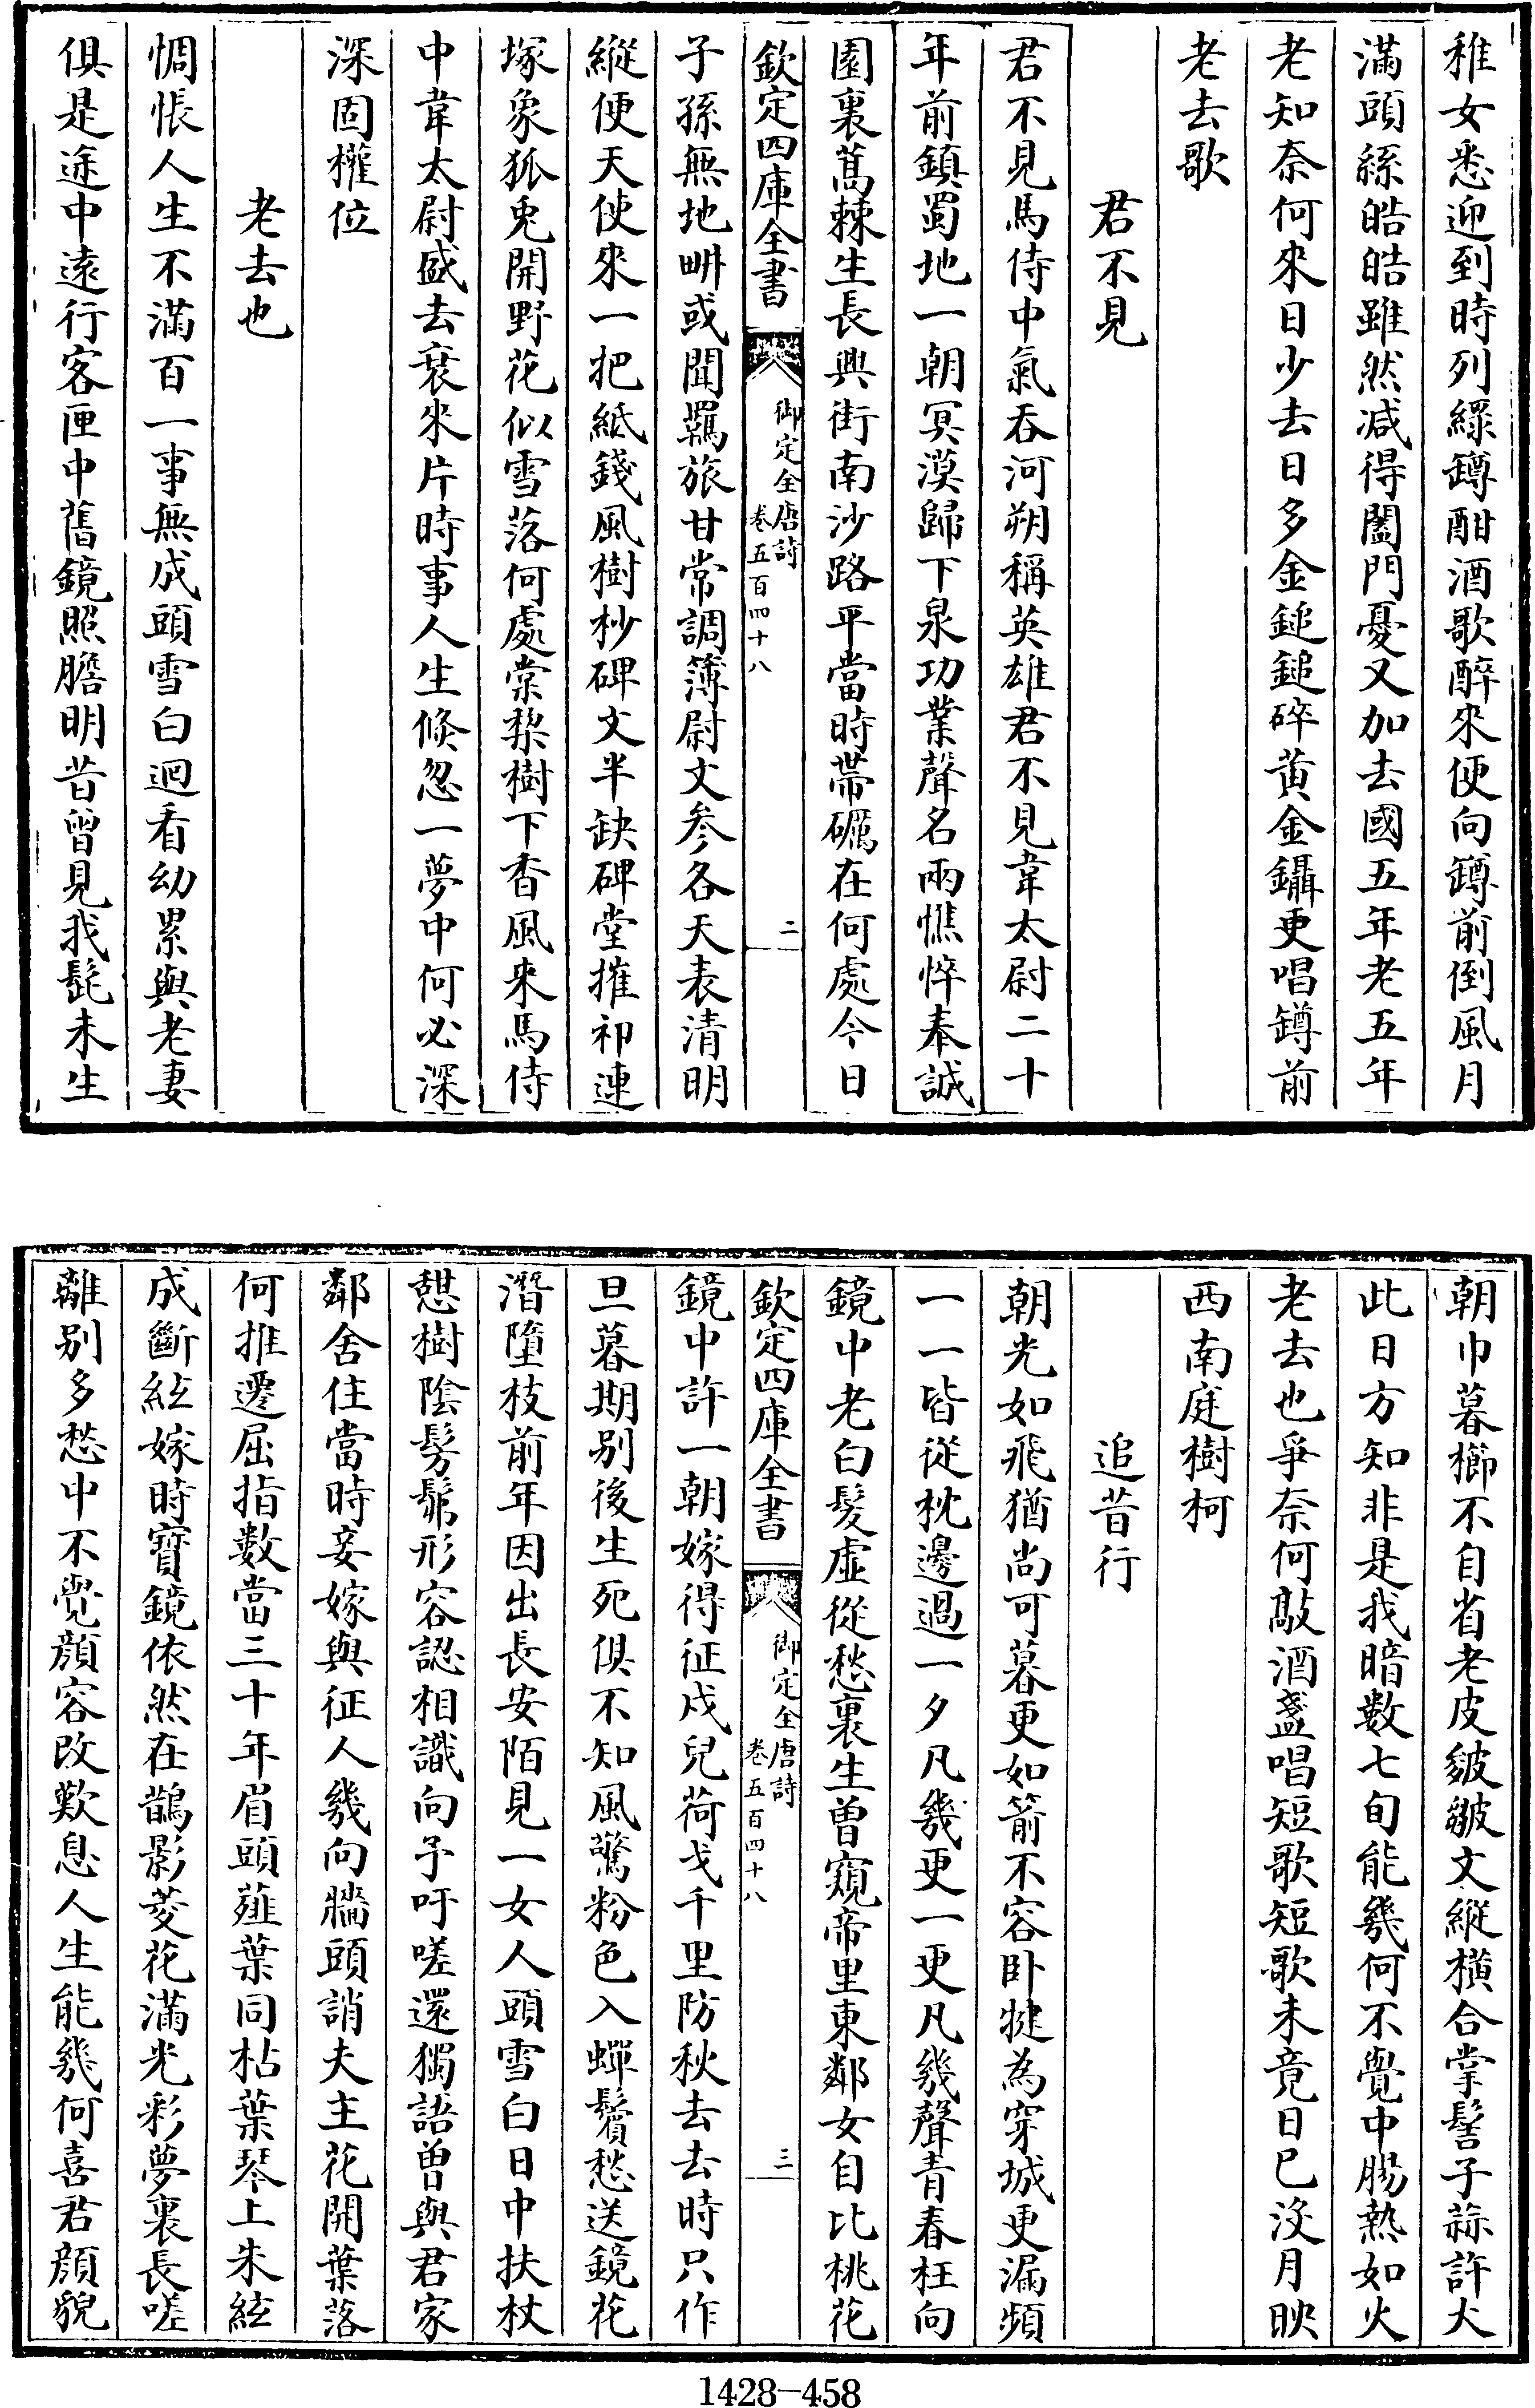 稚女悉迎到時列綠罇酣酒歌醉來便向罇前倒風月
滿頭絲皓皓雖然減得闔門憂又加去國五年老五年
老知奈何來日少去日多金鎚鎚碎黃金鑷更唱罇前
老去歌
君不見
君不見馬侍中氣吞河朔稱英雄君不見韋太尉二十
年前鎮蜀地一朝冥漠歸下泉功業聲名兩憔悴奉誠
園裏蒿棘生長興街南沙路平當時帶礪在何處今日
欽定四庫全書
御定全唐詩
卷五百四十八
二
子孫無地畊或聞羈旅甘常調簿尉文參各天表清明
縱便天使來一把紙錢風樹杪碑文半缺碑堂摧祁連
塚象狐兔開野花似雪落何處棠梨樹下香風來馬侍
中韋太尉盛去衰來片時事人生倏忽一夢中何必深
深固權位
老去也
惆悵人生不滿百一事無成頭雪白迴看幼累與老妻
俱是途中遠行客匣中舊鏡照膽明昔曾見我髭未生
朝巾暮櫛不自省老皮皴皺文縱橫合掌髻子蒜許大
此日方知非是我暗數七旬能幾何不覺中腸熱如火
老去也爭奈何敲酒盞唱短歌短歌未竟日已沒月映
西南庭樹柯
追昔行
朝光如飛猶尚可暮更如箭不容卧犍為穿城更漏頻
一一皆從枕邊過一夕凡幾更一更凡幾聲青春枉向
鏡中老白髮虛從愁裏生曾窺帝里東鄰女自比桃花
欽定四庫全書
御定全唐詩
卷五百四十八
三
鏡中許一朝嫁得征戍兒荷戈千里防秋去去時只作
旦暮期別後生死俱不知風驚粉色入蟬鬢愁送鏡花
潛墮枝前年因出長安陌見一女人頭雪白日中扶杖
憇樹陰髣髴形容認相識向予吁嗟還獨語曾與君家
鄰舍住當時妾嫁與征人幾向牆頭誚夫主花開葉落
何推遷屈指數當三十年眉頭薤葉同枯葉琴上朱絃
成斷絃嫁時寶鏡依然在鵲影菱花滿光彩夢裏長嗟
離別多愁中不覺顏容改歎息人生能幾何喜君顏貌
1428-458